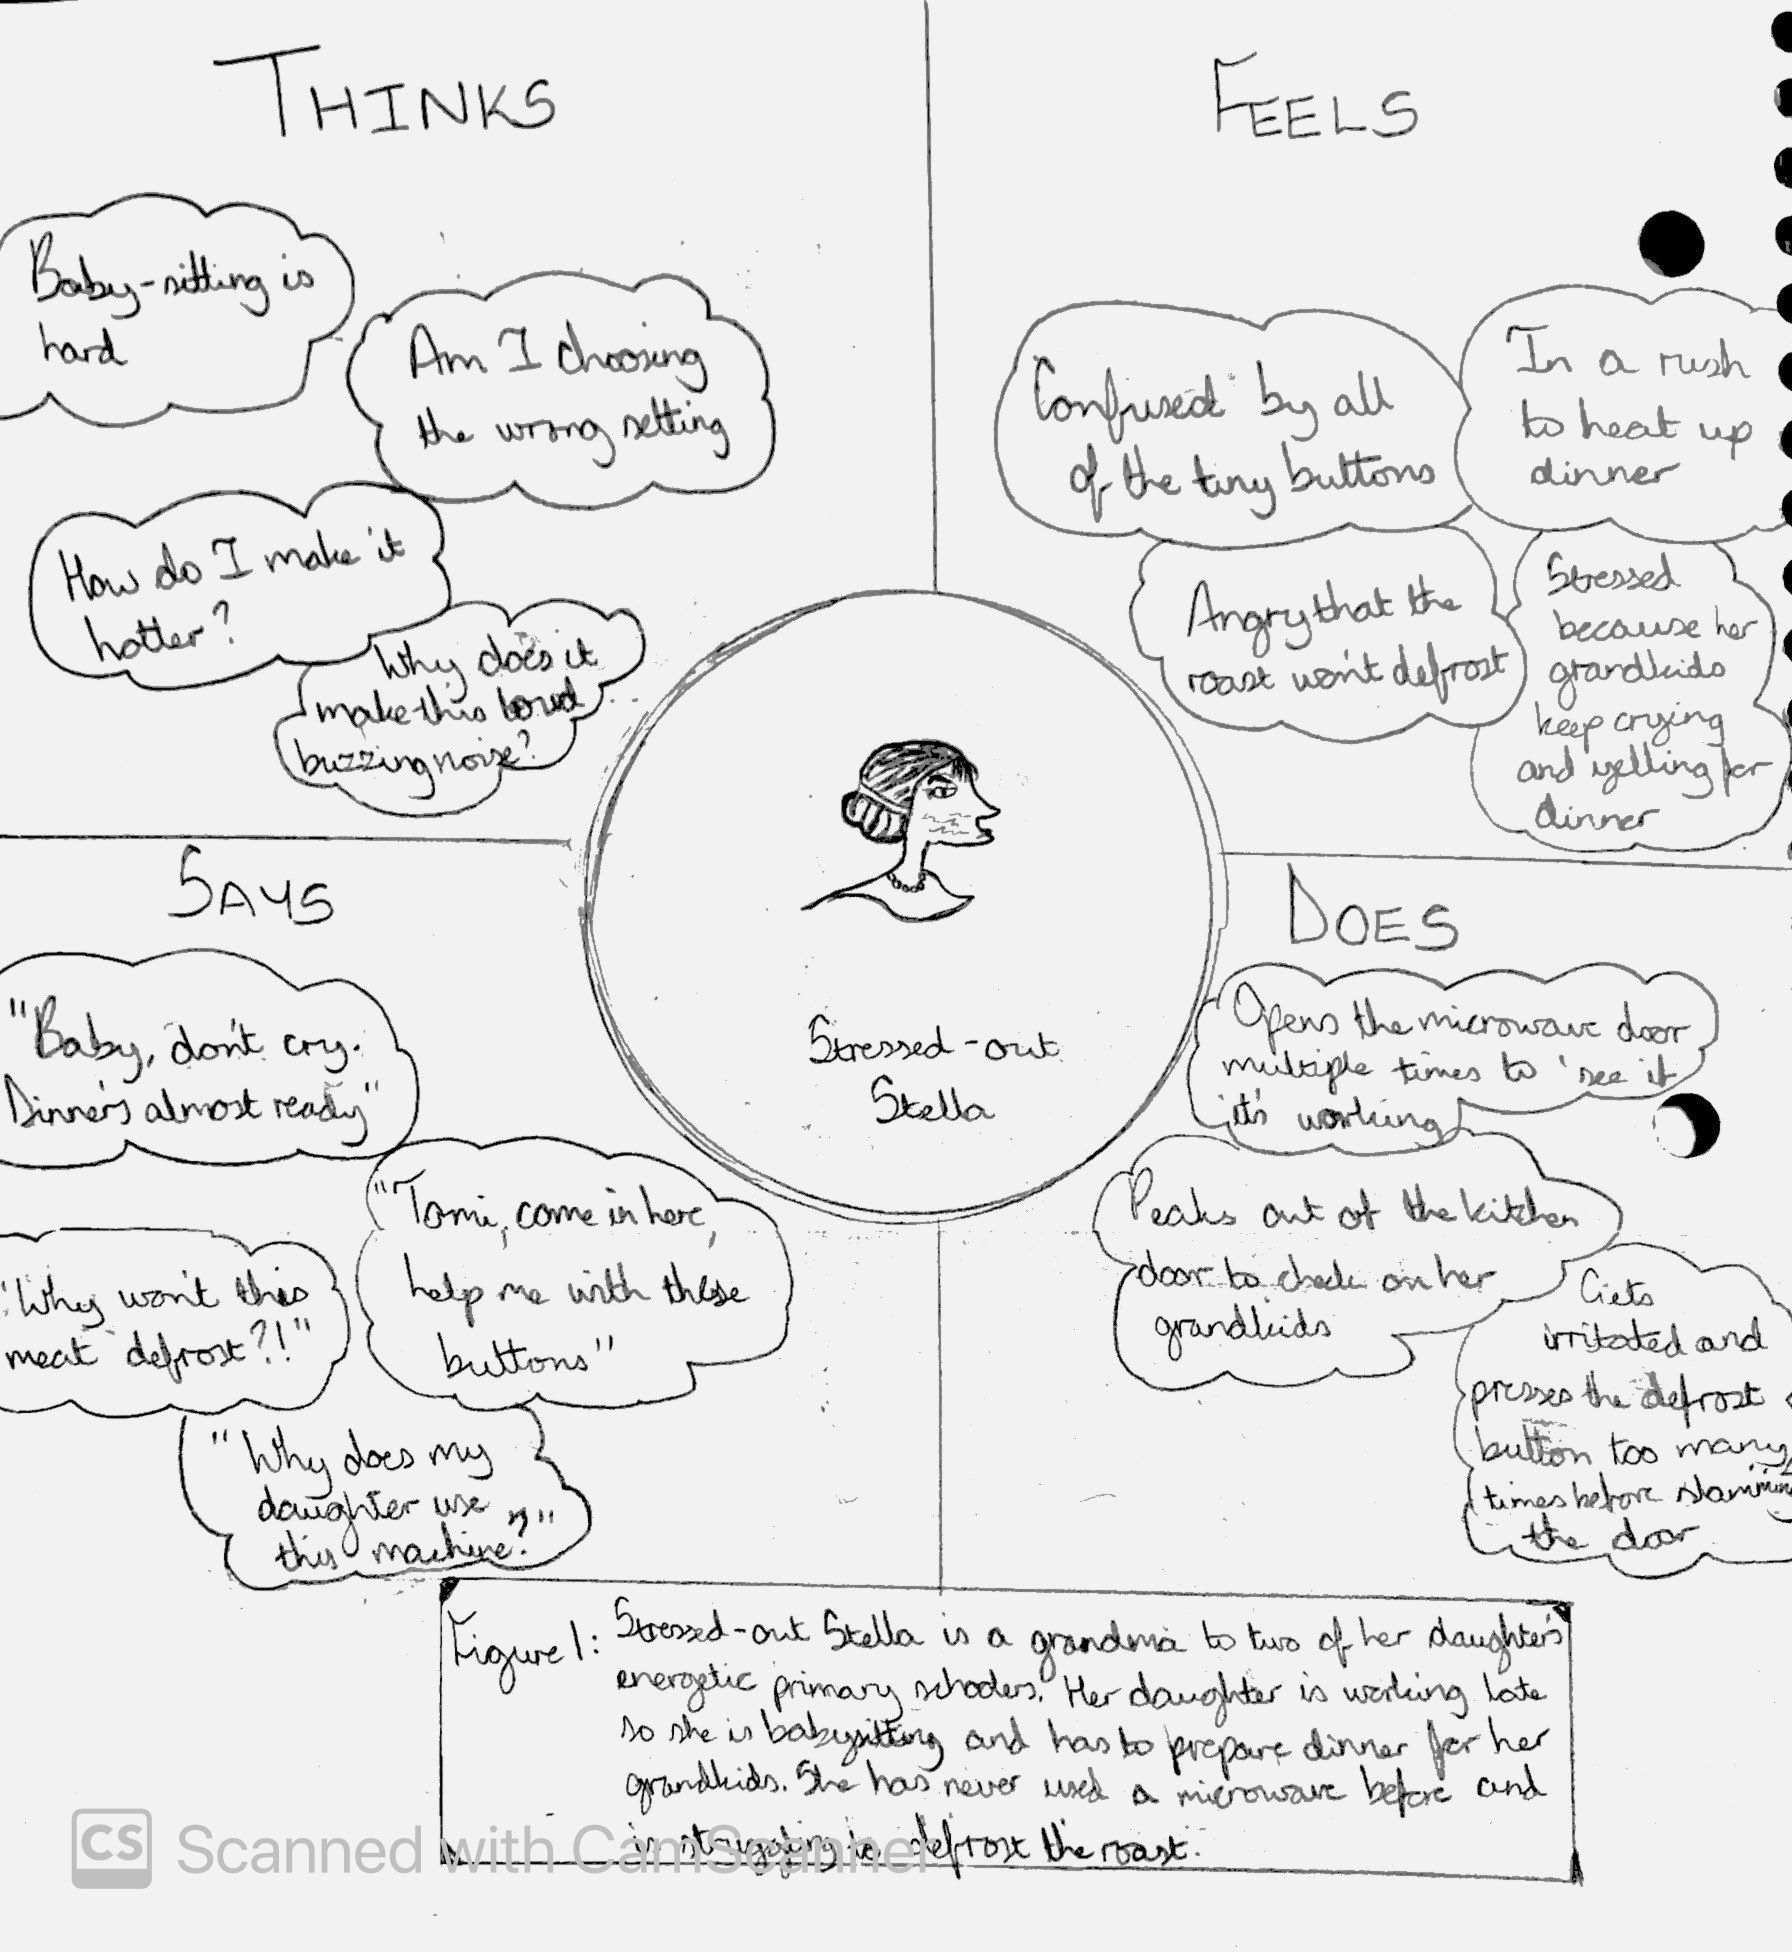 THINKS
Baby-sitting is
hard
Am I choosing
the wrong setting
How do I make it
hotter?
Why does it
make this loud
buzzing noise?
FEELS
Confused by all
of the tiny buttons
In a rush
to heat up
dinner
Angry that the
roast won't defrost
Stressed
because her
grandkids
keep crying
and yelling for
dinner
Stressed-out
Stella
SAYS
"Baby, don't cry.
Dinner's almost ready"
"Tomi, come in here,
help me with these
buttons"
"Why won't this
meat defrost?!"
"Why does my
daughter use
this machine?"
DOES
Opens the microwave door
multiple times to 'see if
it's working'
Peaks out of the kitchen
door to check on her
grandkids
Gets
irritated and
presses the defrost
button too many
times before slamming
the door
Figure 1: Stressed-out Stella is a grandma to two of her daughter's
energetic primary schoolers. Her daughter is working late
so she is babysitting and has to prepare dinner for her
grandkids. She has never used a microwave before and
is struggling to defrost the roast.
CS Scanned with CamScanner